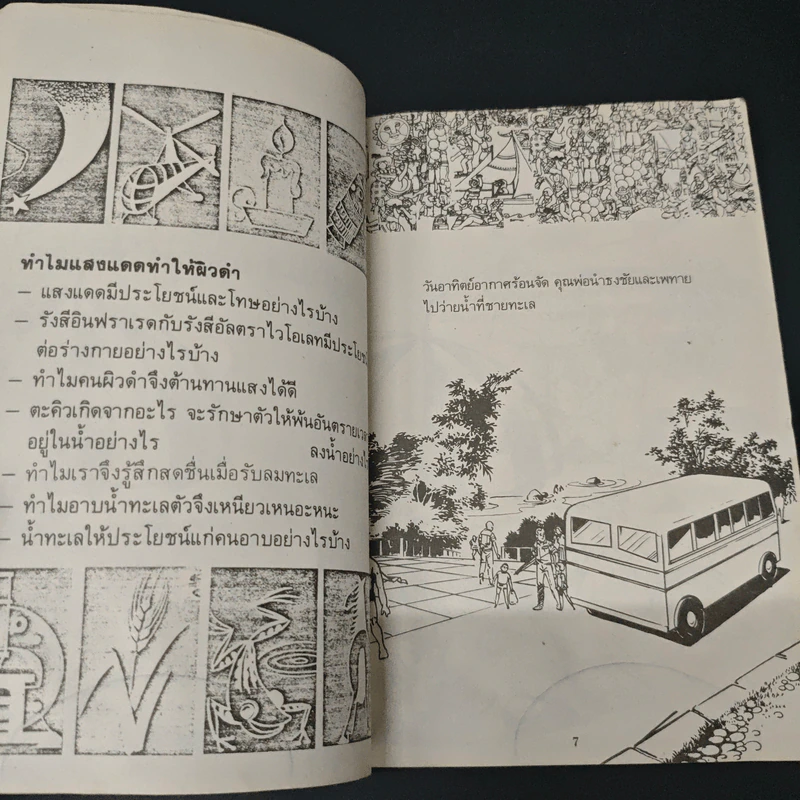 ทำไมแสงแดดทำให้ผิวดำ
– แสงแดดมีประโยชน์และโทษอย่างไรบ้าง
– รังสีอินฟราเรดกับรังสีอัลตราไวโอเลทมีประโยชน์
ต่อร่างกายอย่างไรบ้าง
– ทำไมคนผิวดำจึงต้านทานแสงได้ดี
– ตะคิวเกิดจากอะไร จะรักษาตัวให้พ้นอันตราย
อยู่ในน้ำอย่างไร ลงน้ำ
– ทำไมเราจึงรู้สึกสดชื่นเมื่อรับลมทะเล
– ทำไมอาบน้ำทะเลตัวจึงเหนียวเหนอะหนะ
– น้ำทะเลให้ประโยชน์แก่คนอาบอย่างไรบ้าง
วันอาทิตย์อากาศร้อนจัด คุณพ่อนำธงชัยและเพทาย
ไปว่ายน้ำที่ชายทะเล
7